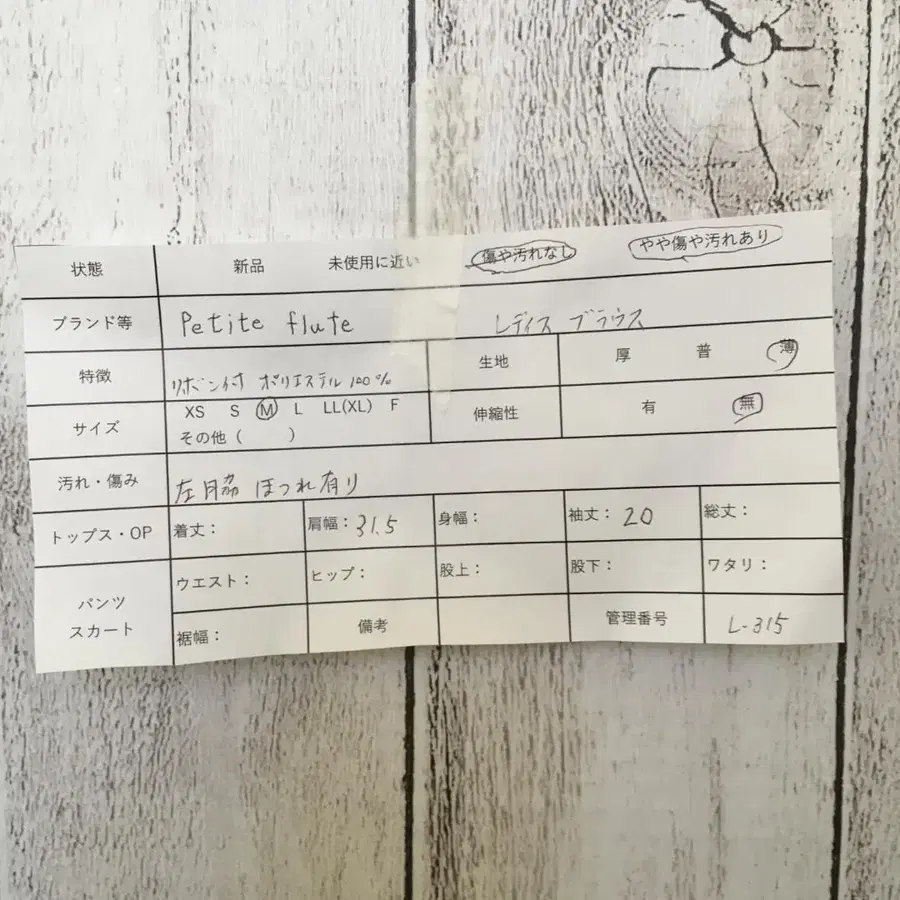 状態 新品 未使用に近い 傷や汚れなし やや傷や汚れあり
ブランド等 Petite flute レディス ブラウス
特徴 リボン付 ポリエステル100% 生地 厚 普 薄
サイズ XS S M L LL(XL) F 伸縮性 有 無
その他( )
汚れ・傷み 左脇 ほつれ有り
トップス・OP 着丈: 肩幅:31.5 身幅: 袖丈:20 総丈:
パンツ スカート ウエスト: ヒップ: 股上: 股下: ワタリ:
裾幅: 備考 管理番号 L-315